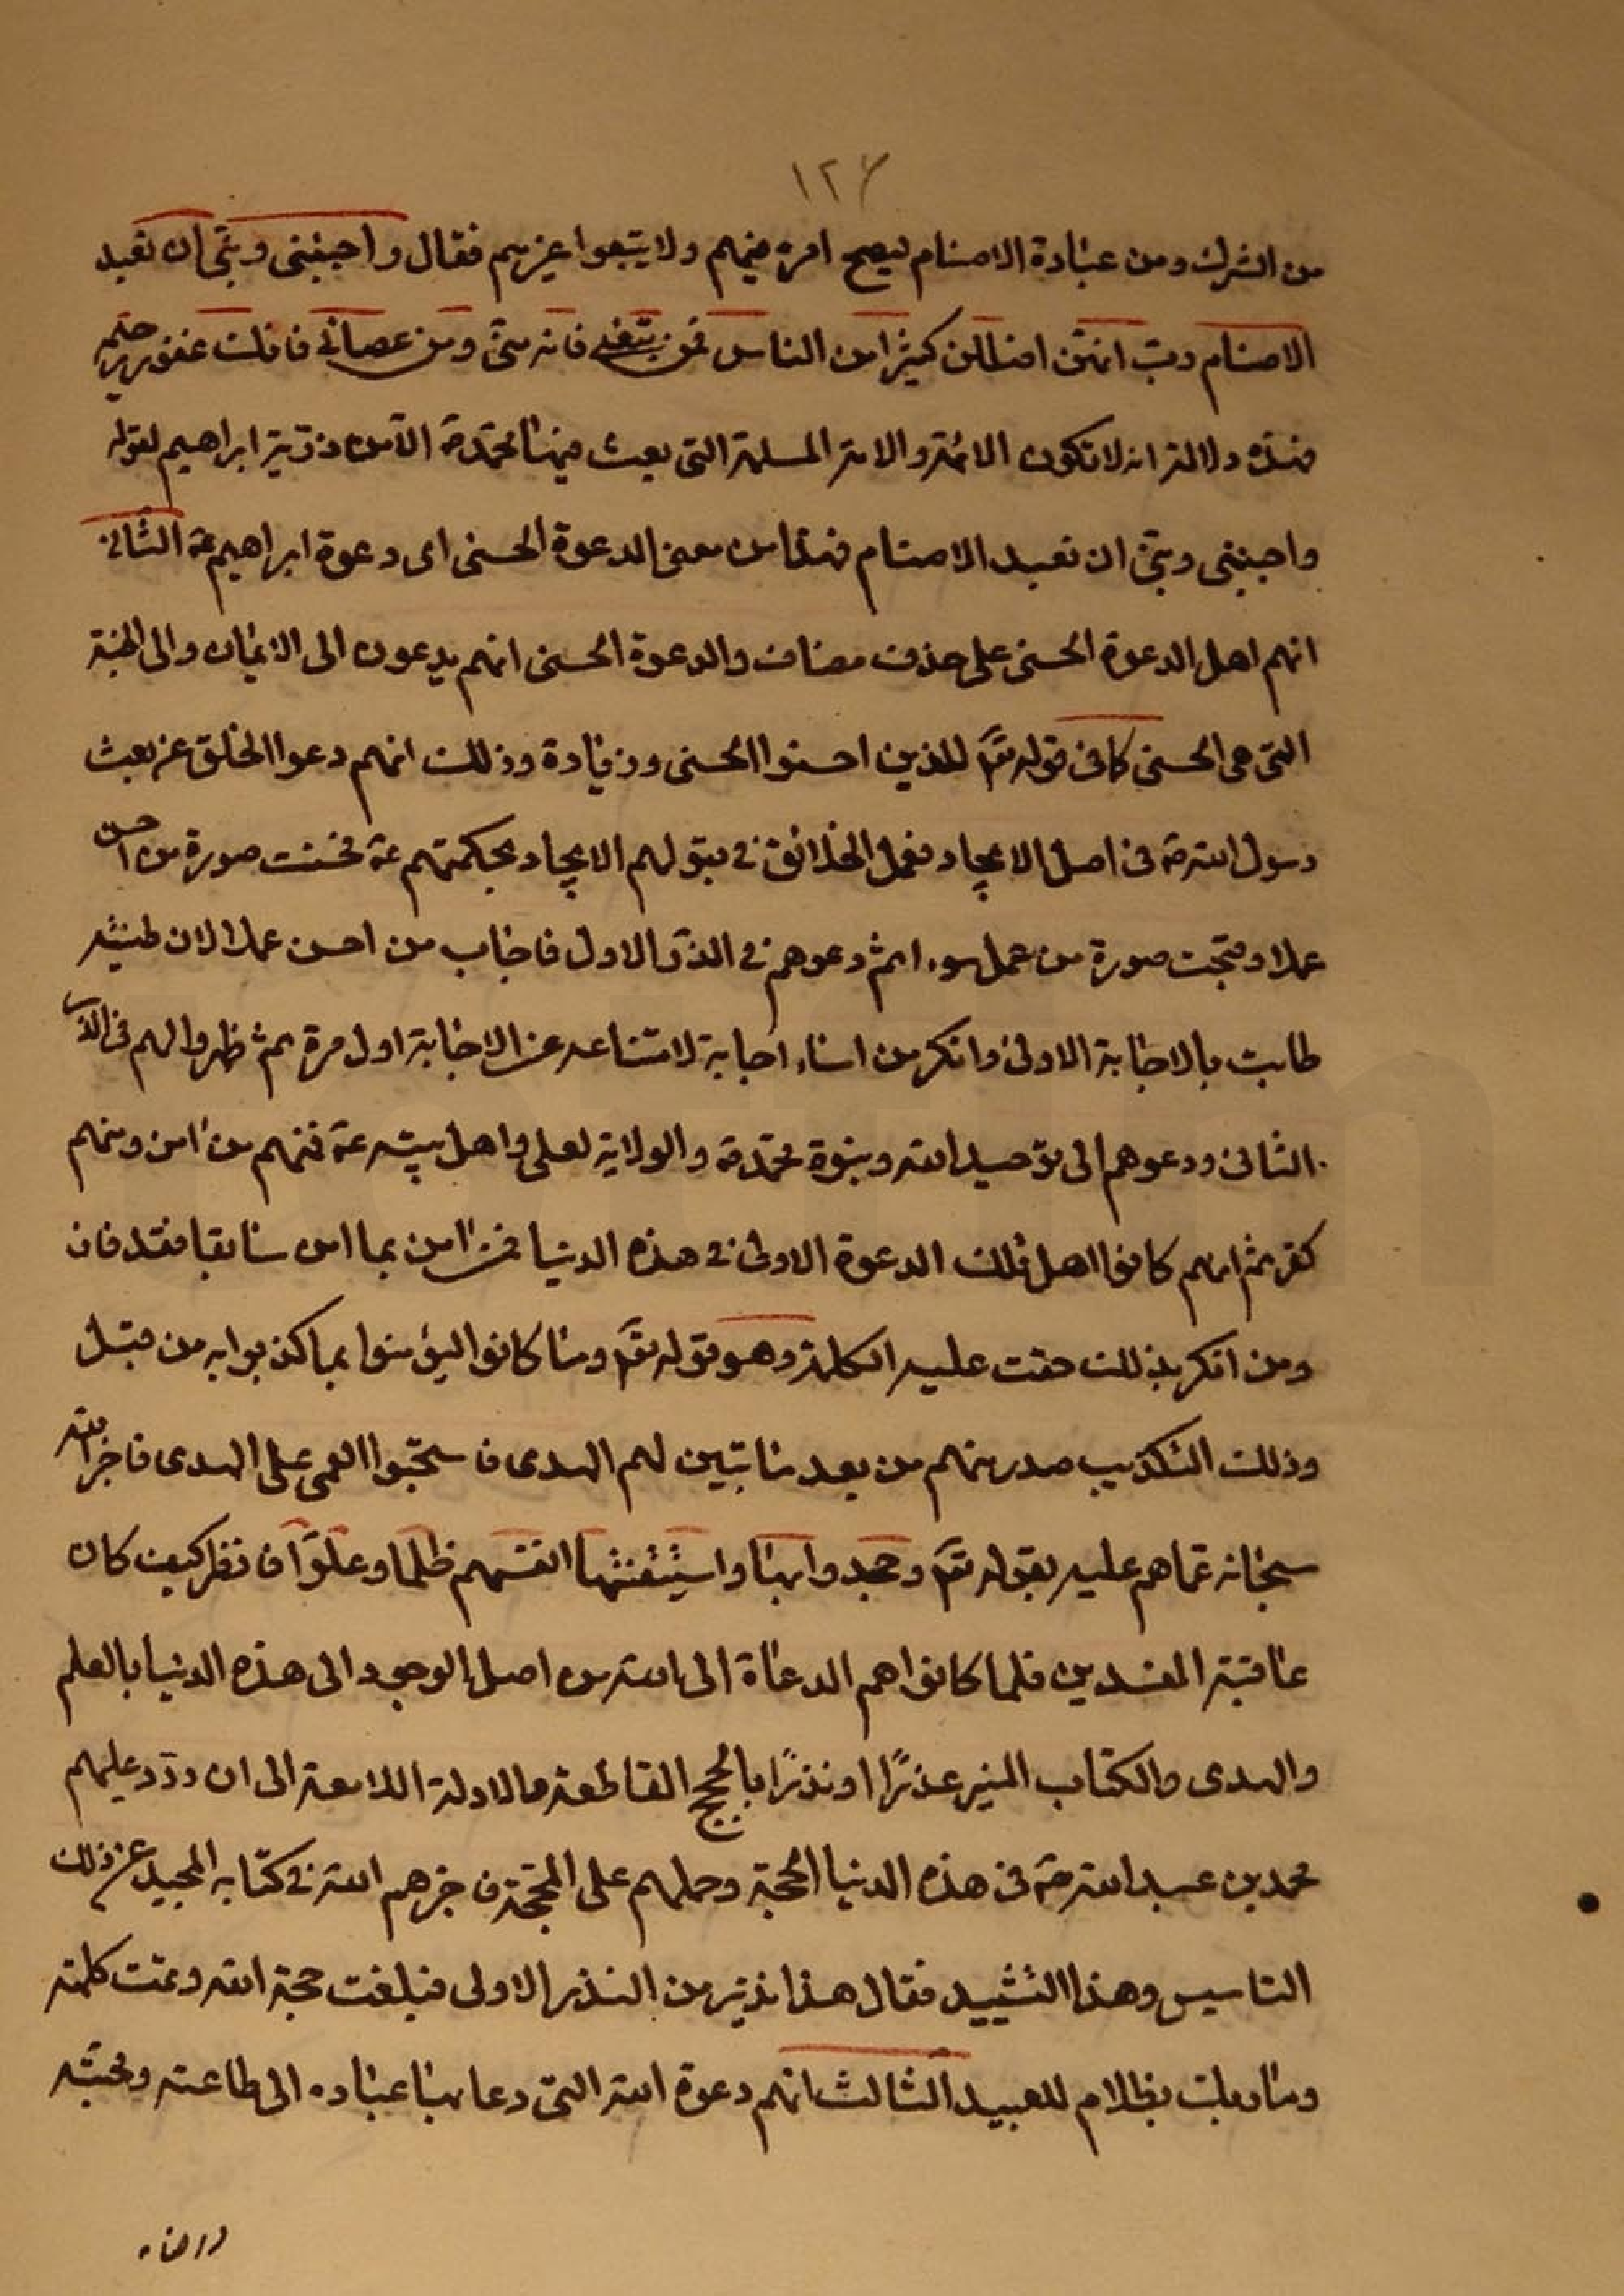 ١٢٧
من الشرك ومن عبادة الاصنام ليصح امره فيهم ولا يتبعوا غيرهم فقال واجنبنى وبنىّ ان نعبد
الاصنام ربّ انهنّ اضللن كثيرا من الناس فمن تبعنى فانه منىّ ومن عصانى فانك غفور رحيم
فهذه دلالة انه لا تكون الائمة والامة المسلمة التى بعث فيها محمد ص الا من ذرّية ابراهيم لقوله
واجنبنى وبنىّ ان نعبد الاصنام فهذا من معنى الدعوة الحسنى اى دعوة ابراهيم ع الثانى
انهم اهل الدعوة الحسنى على حذف مضاف والدعوة الحسنى انهم يدعون الى الايمان والى الجنة
التى هى الحسنى كما فى قوله تع للذين احسنوا الحسنى وزيادة وذلك انهم دعوا الخلق عن بعث
رسول الله ص فى اصل الايجاد فعمل الخلائق فى قبولهم الايجاد بحكمتهم ع فحسنت صورة من احسن
عملا وقبحت صورة من عمل سوء اثم دعوهم فى الذر الاول فاجاب من احسن عملا لان طينته
طابت بالاجابة الاولى وانكر من اساء اجابة لامتناعه عن الاجابة اول مرة ثم ظهروا لهم فى الذر
الثانى ودعوهم الى توحيد الله وبنبوة محمد ص والولاية لعلى واهل بيته ع فمنهم من امن ومنهم
كفر ثم انهم كانوا اهل تلك الدعوة الاولى فى هذه الدنيا فمن امن بما امن سابقا فقد فاز
ومن انكر بذلك حقت عليه الكلمة وهو قوله تع وما كانوا ليؤمنوا بما كذبوا به من قبل
وذلك التكذيب صدر منهم من بعد ما تبين لهم الهدى فاستحبوا العمى على الهدى فاخبر الله
سبحانه عما هم عليه بقوله تع وجحدوا بها واستيقنتها انفسهم ظلما وعلوّا فانظر كيف كان
عاقبة المفسدين فلما كانوا هم الدعاة الى الله من اصل الوجود الى هذه الدنيا بالعلم
والهدى والكتاب المنير عذرًا او نذرًا بالحجج القاطعة والادلة اللامعة الى ان ردّد عليهم
محمد بن عبد الله ص فى هذه الدنيا الحجة وحملهم على المحجة فاخبرهم الله فى كتابه المجيد عن ذلك
التاسيس وهذا التشييد فقال هذا نذير من النذر الاولى فبلغت حجة الله وتمت كلمته
وما ربك بظلام للعبيد الثالث انهم دعوة الله التى دعا بها عباده الى طاعته ومحبته